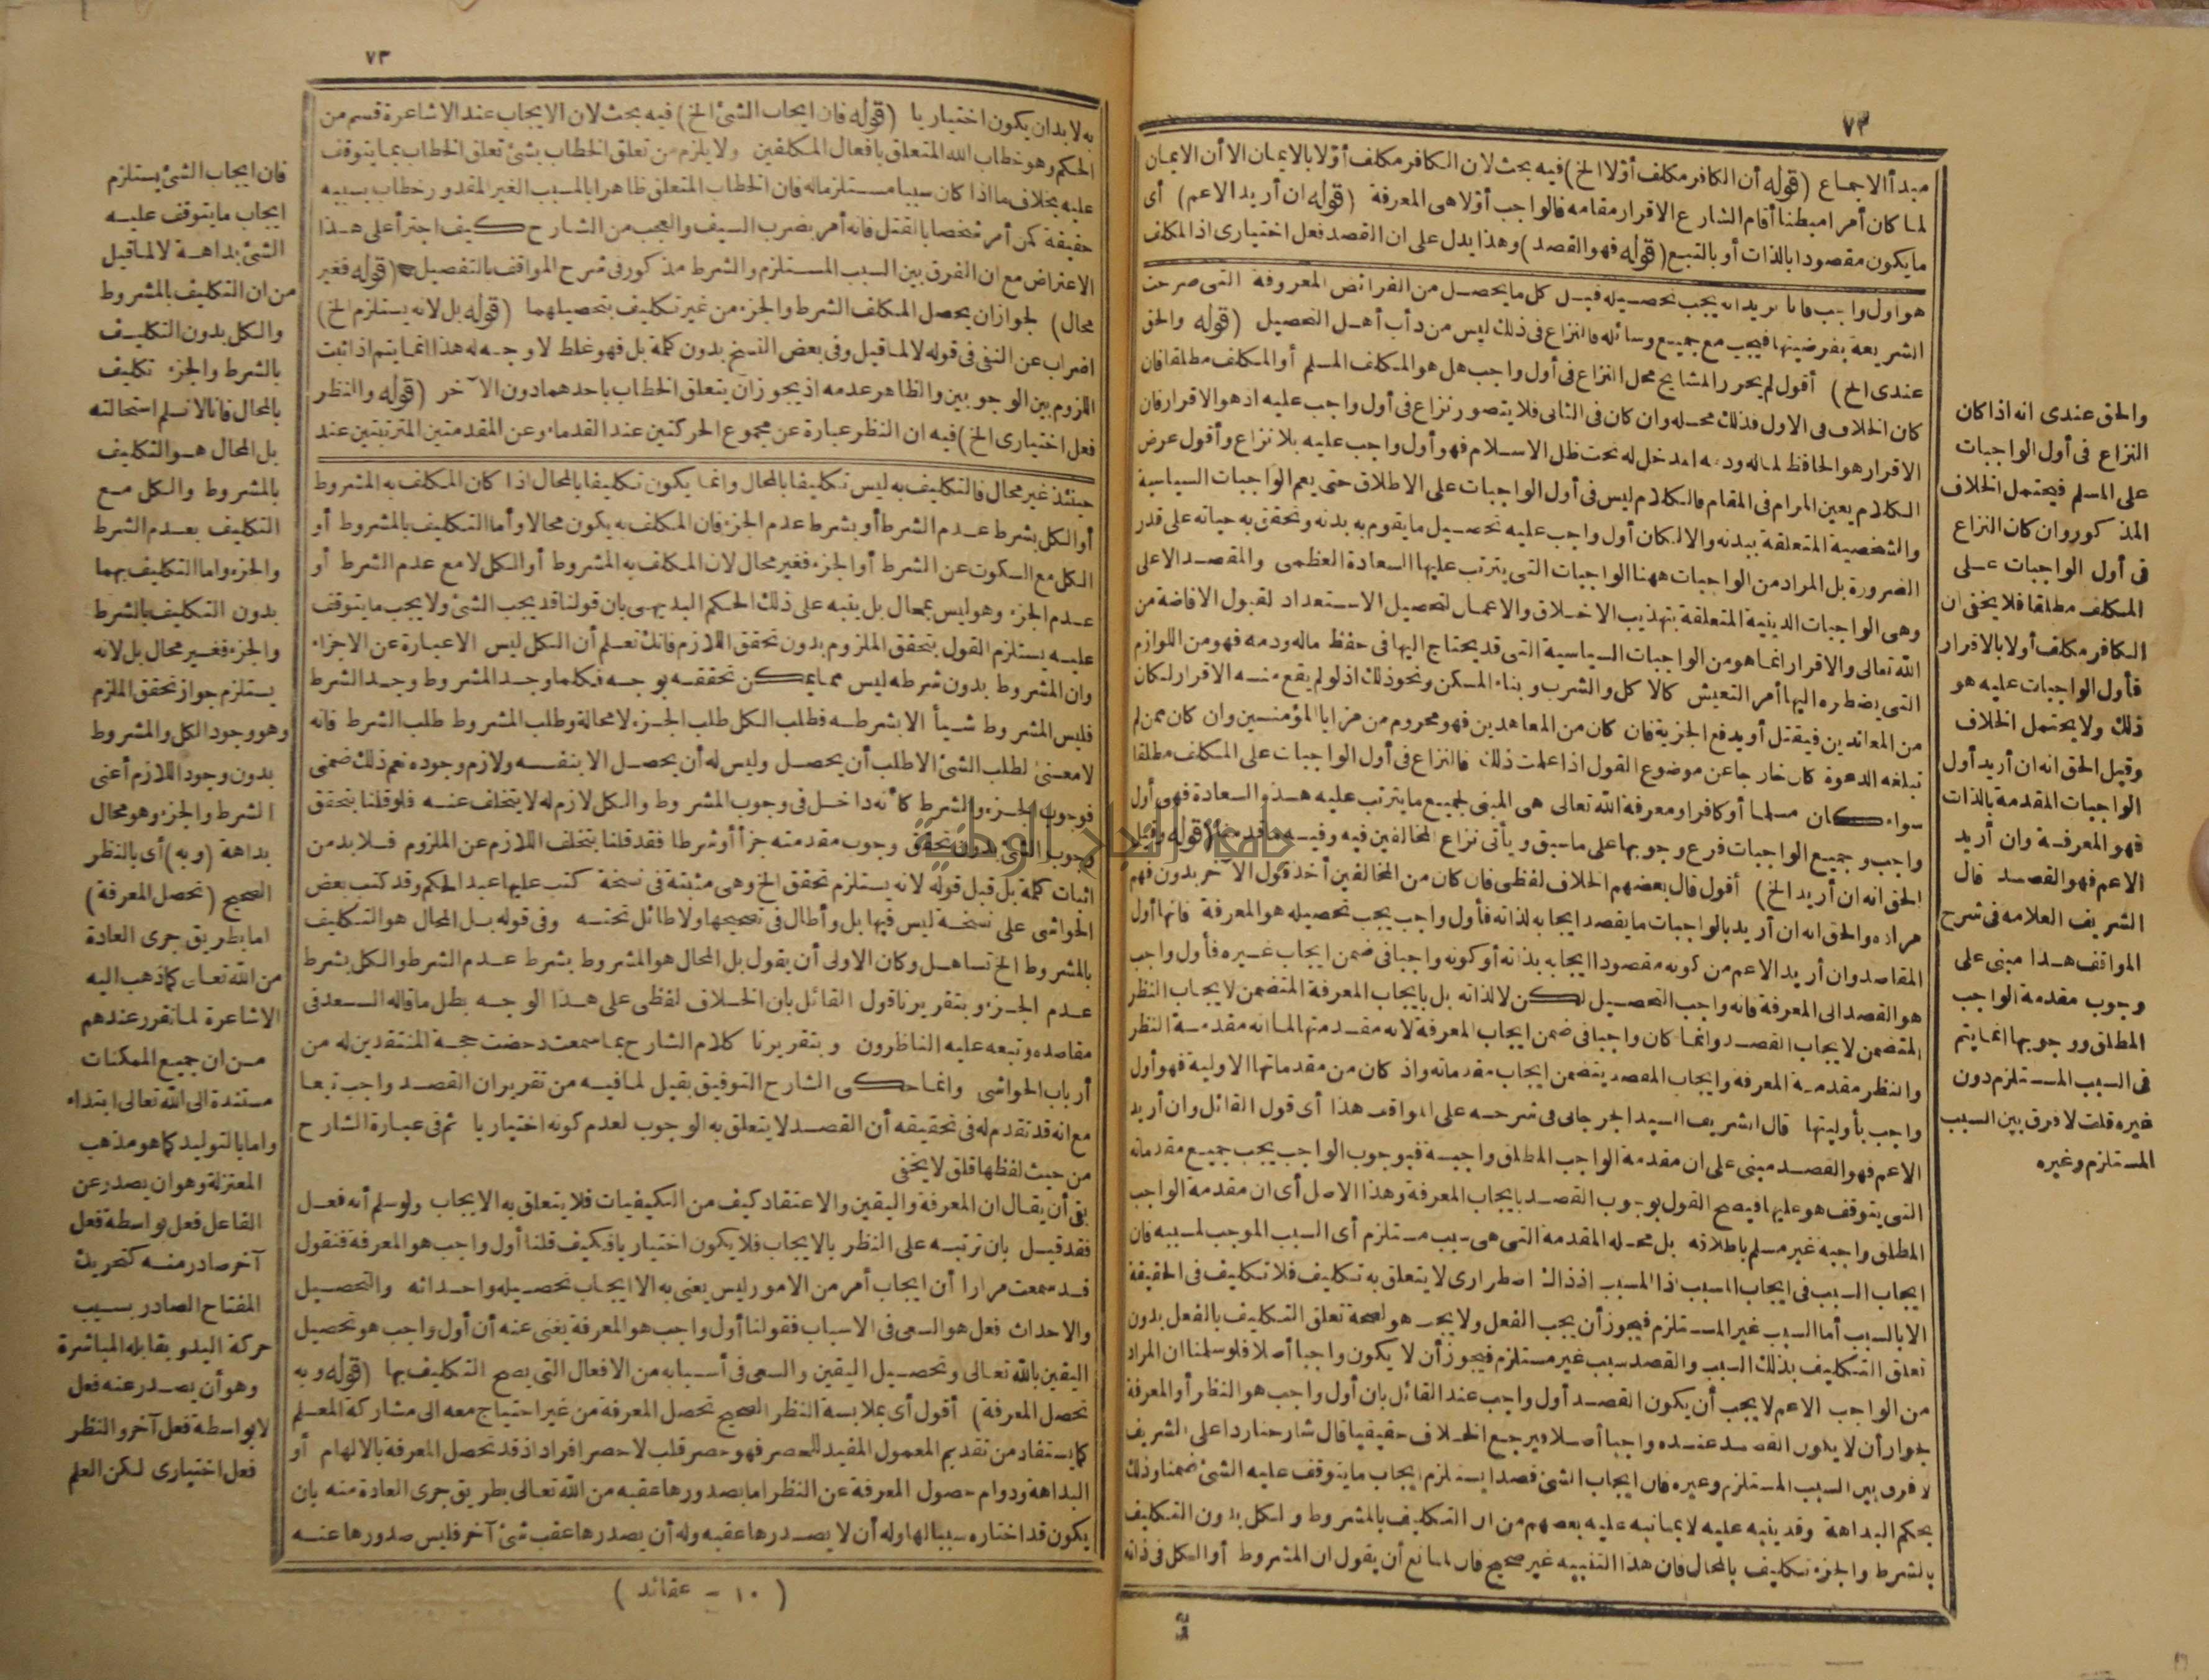 ٧٣
مبدأ الاجماع (قوله أن الكافر مكلف أوّلا الخ) فيه بحث لان الكافر مكلف أوّلا بالايمان الا أن الايمان
لما كان أمرا مبطنا أقام الشارع الاقرار مقامه فالواجب أوّلا هى المعرفة (قوله ان أريد الاعم) أى
ما يكون مقصودا بالذات أو بالتبع (قوله فهو القصد) وهذا يدل على ان القصد فعل اختيارى اذ المكلف
هو أول واجب فانا نريد انه يجب تحصيله قبل كل ما يحصل من الفرائض المعروفة التى صرحت
الشريعة بفرضيتها فيجب مع جميع وسائله فالنزاع فى ذلك ليس من دأب أهل التحصيل (قوله والحق
عندى الخ) أقول لم يحرر المشايخ محل النزاع فى أول واجب هل هو المكلف المسلم أو المكلف مطلقا فان
كان الخلاف فى الاول فذلك محله وان كان فى الثانى فلا يتصور نزاع فى أول واجب عليه اذ هو الاقرار فان
الاقرار هو الحافظ لماله ودمه المدخل له تحت ظل الاسلام فهو أول واجب عليه بلا نزاع وأقول عرض
الكلام يعين المرام فى المقام فالكلام ليس فى أول الواجبات على الاطلاق حتى يعم الواجبات السياسية
والشخصية المتعلقة ببدنه والا لكان أول واجب عليه تحصيل ما يقوم به بدنه وتحقق به حياته على قدر
الضرورة بل المراد من الواجبات ههنا الواجبات التى يترتب عليها السعادة العظمى والمقصد الاعلى
وهى الواجبات الدينية المتعلقة بتهذيب الاخلاق والاعمال لتحصيل الاستعداد لقبول الافاضة من
الله تعالى والاقرار انما هو من الواجبات السياسية التى قد يحتاج اليها فى حفظ ماله ودمه فهو من اللوازم
التى يضطره اليها أمر التعيش كالاكل والشرب وبناء المسكن ونحو ذلك اذ لو لم يقع منه الاقرار لكان
من المعاندين فيقتل أو يدفع الجزية فان كان من المعاهدين فهو محروم من مزايا المؤمنين وان كان ممن لم
تبلغه الدعوة كان خارجا عن موضوع القول اذا علمت ذلك فالنزاع فى أول الواجبات على المكلف مطلقا
سواء كان مسلما أو كافرا ومعرفة الله تعالى هى المبنى لجميع ما يترتب عليه هذه السعادة فهى أول
واجب وجميع الواجبات فرع وجوبها على ما سبق ويأتى نزاع المخالفين فيه وفيه ما قدمنا (قوله وقيل
الحق انه ان أريد الخ) أقول قال بعضهم الخلاف لفظى فان كان من المخالفين أخذ قول الآخر بدون فهم
مراده والحق انه ان أريد بالواجبات ما يقصد ايجابه لذاته فأول واجب يجب تحصيله هو المعرفة فانها أول
المقاصد وان أريد الاعم من كونه مقصودا ايجابه بذاته أو كونه واجبا فى ضمن ايجاب غيره فأول واجب
هو القصد الى المعرفة فانه واجب التحصيل لكن لا لذاته بل بايجاب المعرفة المتضمن لايجاب النظر
المتضمن لايجاب القصد وانما كان واجبا فى ضمن ايجاب المعرفة لانه مقدمتها لما انه مقدمة النظر
والنظر مقدمة المعرفة وايجاب المقصد يتضمن ايجاب مقدماته واذ كان من مقدماتها الاولية فهو أول
واجب بأوليتها قال الشريف السيد الجرجانى فى شرحه على المواقف هذا أى قول القائل وان أريد
الاعم فهو القصد مبنى على ان مقدمة الواجب المطلق واجبة فبوجوب الواجب يجب جميع مقدماته
التى يتوقف هو عليها فيصح القول بوجوب القصد بايجاب المعرفة وهذا الاصل أى ان مقدمة الواجب
المطلق واجبة غير مسلم باطلاقه بل محله المقدمة التى هى سبب مستلزم أى السبب الموجب لمسببه فان
ايجاب السبب فى ايجاب المسبب اذا المسبب اذ ذاك اضطرارى لا يتعلق به تكليف فلا تكليف فى الحقيقة
الا بالسبب أما السبب غير المستلزم فيجوز أن يجب الفعل ولا يجب هو لصحة تعلق التكليف بالفعل بدون
تعلق التكليف بذلك السبب والقصد سبب غير مستلزم فيجوز أن لا يكون واجبا أصلا فلو سلمنا ان المراد
من الواجب الاعم لا يجب أن يكون القصد أول واجب عند القائل بان أول واجب هو النظر أو المعرفة
لجواز أن لا يكون القصد عنده واجبا أصلا فيرجع الخلاف حقيقيا قال شارحنا ردا على الشريف
لا فرق بين السبب المستلزم وغيره فان ايجاب الشئ قصدا يستلزم ايجاب ما يتوقف عليه الشئ ضمنا وذلك
بحكم البداهة وقد ينبه عليه لا بما نبه عليه بعضهم من ان التكليف بالمشروط والكل بدون التكليف
بالشرط والجزء تكليف بالمحال فان هذا التنبيه غير صحيح فان لمانع أن يقول ان المشروط أو الكل فى ذاته
والحق عندى انه اذا كان
النزاع فى أول الواجبات
على المسلم فيحتمل الخلاف
المذكور وان كان النزاع
فى أول الواجبات على
المكلف مطلقا فلا يخفى ان
الكافر مكلف أولا بالاقرار
فأول الواجبات عليه هو
ذلك ولا يحتمل الخلاف
وقيل الحق انه ان أريد أول
الواجبات المقدمة بالذات
فهو المعرفة وان أريد
الاعم فهو القصد قال
الشريف العلامه فى شرح
المواقف هذا مبنى على
وجوب مقدمة الواجب
المطلق ووجوبها انما يتم
فى السبب المستلزم دون
غيره قلت لا فرق بين السبب
المستلزم وغيره
٧٣
به لا بد ان يكون اختياريا (قوله فان ايجاب الشئ الخ) فيه بحث لان الايجاب عند الاشاعرة قسم من
الحكم وهو خطاب الله المتعلق بافعال المكلفين ولا يلزم من تعلق الخطاب بشئ تعلق الخطاب بما يتوقف
عليه بخلاف ما اذا كان سببا مستلزما له فان الخطاب المتعلق ظاهرا بالمسبب الغير المقدور خطاب بسببه
حقيقة كمن أمر شخصا بالقتل فانه أمر بضرب السيف والعجب من الشارح كيف اجترأ على هذا
الاعتراض مع ان الفرق بين السبب المستلزم والشرط مذكور فى شرح المواقف بالتفصيل (قوله فغير
محال) لجواز ان يحصل المكلف الشرط والجزء من غير تكليف بتحصيلهما (قوله بل لانه يستلزم الخ)
اضراب عن النفى فى قوله لا لما قيل وفى بعض النسخ بدون كلمة بل فهو غلط لا وجه له هذا انما يتم اذا ثبت
اللزوم بين الوجوبين والظاهر عدمه اذ يجوز ان يتعلق الخطاب باحدهما دون الآخر (قوله والنظر
فعل اختيارى الخ) فيه ان النظر عبارة عن مجموع الحركتين عند القدماء وعن المقدمتين المترتبتين عند
حينئذ غير محال فالتكليف به ليس تكليفا بالمحال وانما يكون تكليفا بالمحال اذا كان المكلف به المشروط
أو الكل بشرط عدم الشرط أو بشرط عدم الجزء فان المكلف به يكون محالا وأما التكليف بالمشروط أو
الكل مع السكوت عن الشرط أو الجزء فغير محال لان المكلف به المشروط أو الكل لا مع عدم الشرط أو
عدم الجزء وهو ليس بمحال بل ينبه على ذلك الحكم البديهى بان قولنا قد يجب الشئ ولا يجب ما يتوقف
عليه يستلزم القول بتحقق الملزوم بدون تحقق اللازم فانك تعلم أن الكل ليس الا عبارة عن الاجزاء
وان المشروط بدون شرطه ليس مما يمكن تحققه بوجه فكلما وجد المشروط وجد الشرط
فليس المشروط شيأ الا بشرطه فطلب الكل طلب الجزء لا محالة وطلب المشروط طلب الشرط فانه
لا معنى لطلب الشئ الا طلب أن يحصل وليس له أن يحصل الا بنفسه ولازم وجوده نعم ذلك ضمنى
فوجوب الجزء والشرط كأنه داخل فى وجوب المشروط والكل لازم له لا يتخلف عنه فلو قلنا بتحقق
وجوب الشئ بدون تحقق وجوب مقدمته جزأ أو شرطا فقد قلنا بتخلف اللازم عن الملزوم فلا بد من
اثبات كلمة بل قبل قوله لانه يستلزم تحقق الخ وهى مثبتة فى نسخة كتب عليها عبد الحكيم وقد كتب بعض
الحواشى على نسخة ليس فيها بل وأطال فى تصحيحها ولا طائل تحته وفى قوله بل المحال هو التكليف
بالمشروط الخ تساهل وكان الاولى أن يقول بل المحال هو المشروط بشرط عدم الشرط والكل بشرط
عدم الجزء وبتقريرنا قول القائل بان الخلاف لفظى على هذا الوجه بطل ما قاله السعد فى
مقاصده وتبعه عليه الناظرون وبتقريرنا كلام الشارح بما سمعت دحضت حجة المنتقدين له من
أرباب الحواشى وانما حكى الشارح التوفيق بقيل لما فيه من تقرير ان القصد واجب تبعا
مع انه قد تقدم له فى تحقيقه أن القصد لا يتعلق به الوجوب لعدم كونه اختياريا ثم فى عبارة الشارح
من حيث لفظها قلق لا يخفى
بقى أن يقال ان المعرفة واليقين والاعتقاد كيف من الكيفيات فلا يتعلق به الايجاب ولو سلم أنه فعل
فقد قيل بان ترتبه على النظر بالايجاب فلا يكون اختياريا فكيف قلنا أول واجب هو المعرفة فنقول
قد سمعت مرارا أن ايجاب أمر من الامور ليس يعنى به الا ايجاب تحصيله واحداثه والتحصيل
والاحداث فعل هو السعى فى الاسباب فقولنا أول واجب هو المعرفة يغنى عنه أن أول واجب هو تحصيل
اليقين بالله تعالى وتحصيل اليقين والسعى فى أسبابه من الافعال التى يصح التكليف بها (قوله وبه
تحصل المعرفة) أقول أى بملابسة النظر الصحيح تحصل المعرفة من غير احتياج معه الى مشاركة المعلم
كما يستفاد من تقديم المعمول المفيد للحصر فهو حصر قلب لا حصر افراد اذ قد تحصل المعرفة بالالهام أو
البداهة ودوام حصول المعرفة عن النظر اما بصدورها عقبه من الله تعالى بطريق جرى العادة منه بان
يكون قد اختاره سببا لها وله أن لا يصدرها عقبه وله أن يصدرها عقب شئ آخر فليس صدورها عنه
فان ايجاب الشئ يستلزم
ايجاب ما يتوقف عليه
الشئ بداهة لا لما قيل
من ان التكليف بالمشروط
والكل بدون التكليف
بالشرط والجزء تكليف
بالمحال فانا لا نسلم استحالته
بل المحال هو التكليف
بالمشروط والكل مع
التكليف بعدم الشرط
والجزء واما التكليف بهما
بدون التكليف بالشرط
والجزء فغير محال بل لانه
يستلزم جواز تحقق الملزم
وهو وجود الكل والمشروط
بدون وجود اللازم أعنى
الشرط والجزء وهو محال
بداهة (وبه) أى بالنظر
الصحيح (تحصل المعرفة)
اما بطريق جرى العادة
من الله تعالى كما ذهب اليه
الاشاعرة لما تقرر عندهم
من ان جميع الممكنات
مستندة الى الله تعالى ابتداء
واما بالتوليد كما هو مذهب
المعتزلة وهو ان يصدر عن
الفاعل فعل بواسطة فعل
آخر صادر منه كتحريك
المفتاح الصادر بسبب
حركة اليد ويقابله المباشرة
وهو أن يصدر عنه فعل
لا بواسطة فعل آخر والنظر
فعل اختيارى لكن العلم
(١٠ - عقائد)
جامعة النجاح الوطنية